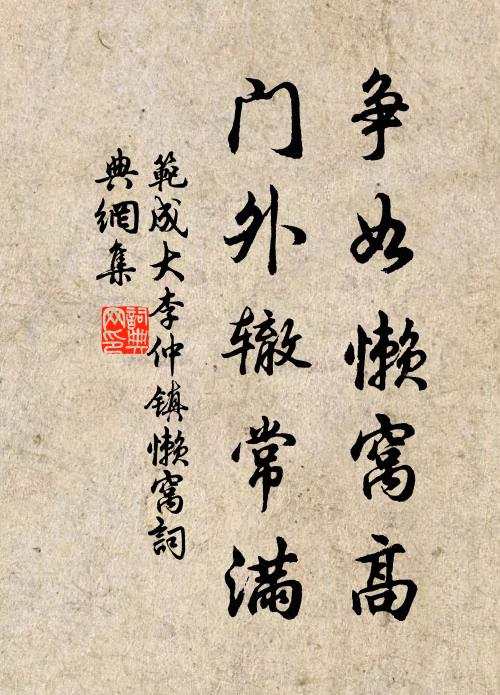 争如懒窝高
门外辙常满
範成大李仲镇懒窝詞
典網集
詞典網印